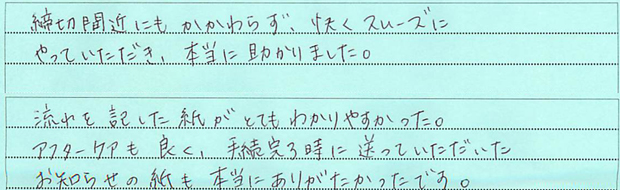 締切間近にもかかわらず、快くスムーズに
やっていただき、本当に助かりました。
流れを記した紙がとてもわかりやすかった。
アフターケアも良く、手続完了時に送っていただいた
お知らせの紙も本当にありがたかったです。